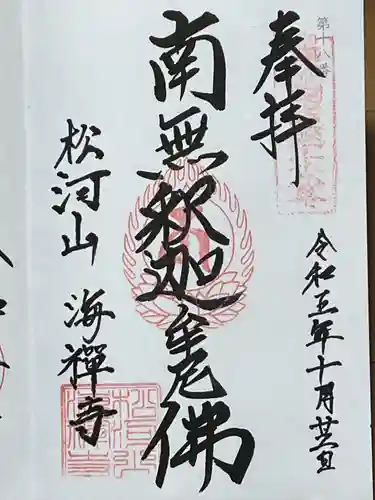 第十八番
奉拝
令和五年十月廿六日
南無釈迦牟尼佛
松河山 海禅寺